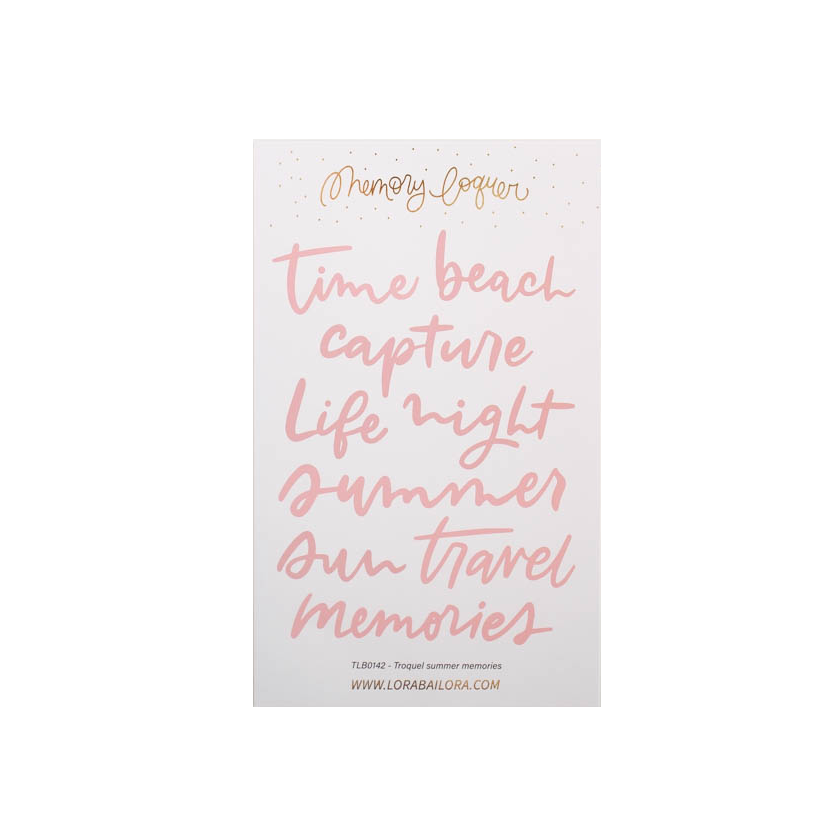 Memory loquer
time beach
capture
Life night
summer
sun travel
memories
TLB0142 - Troquel summer memories
WWW.LORABAILORA.COM